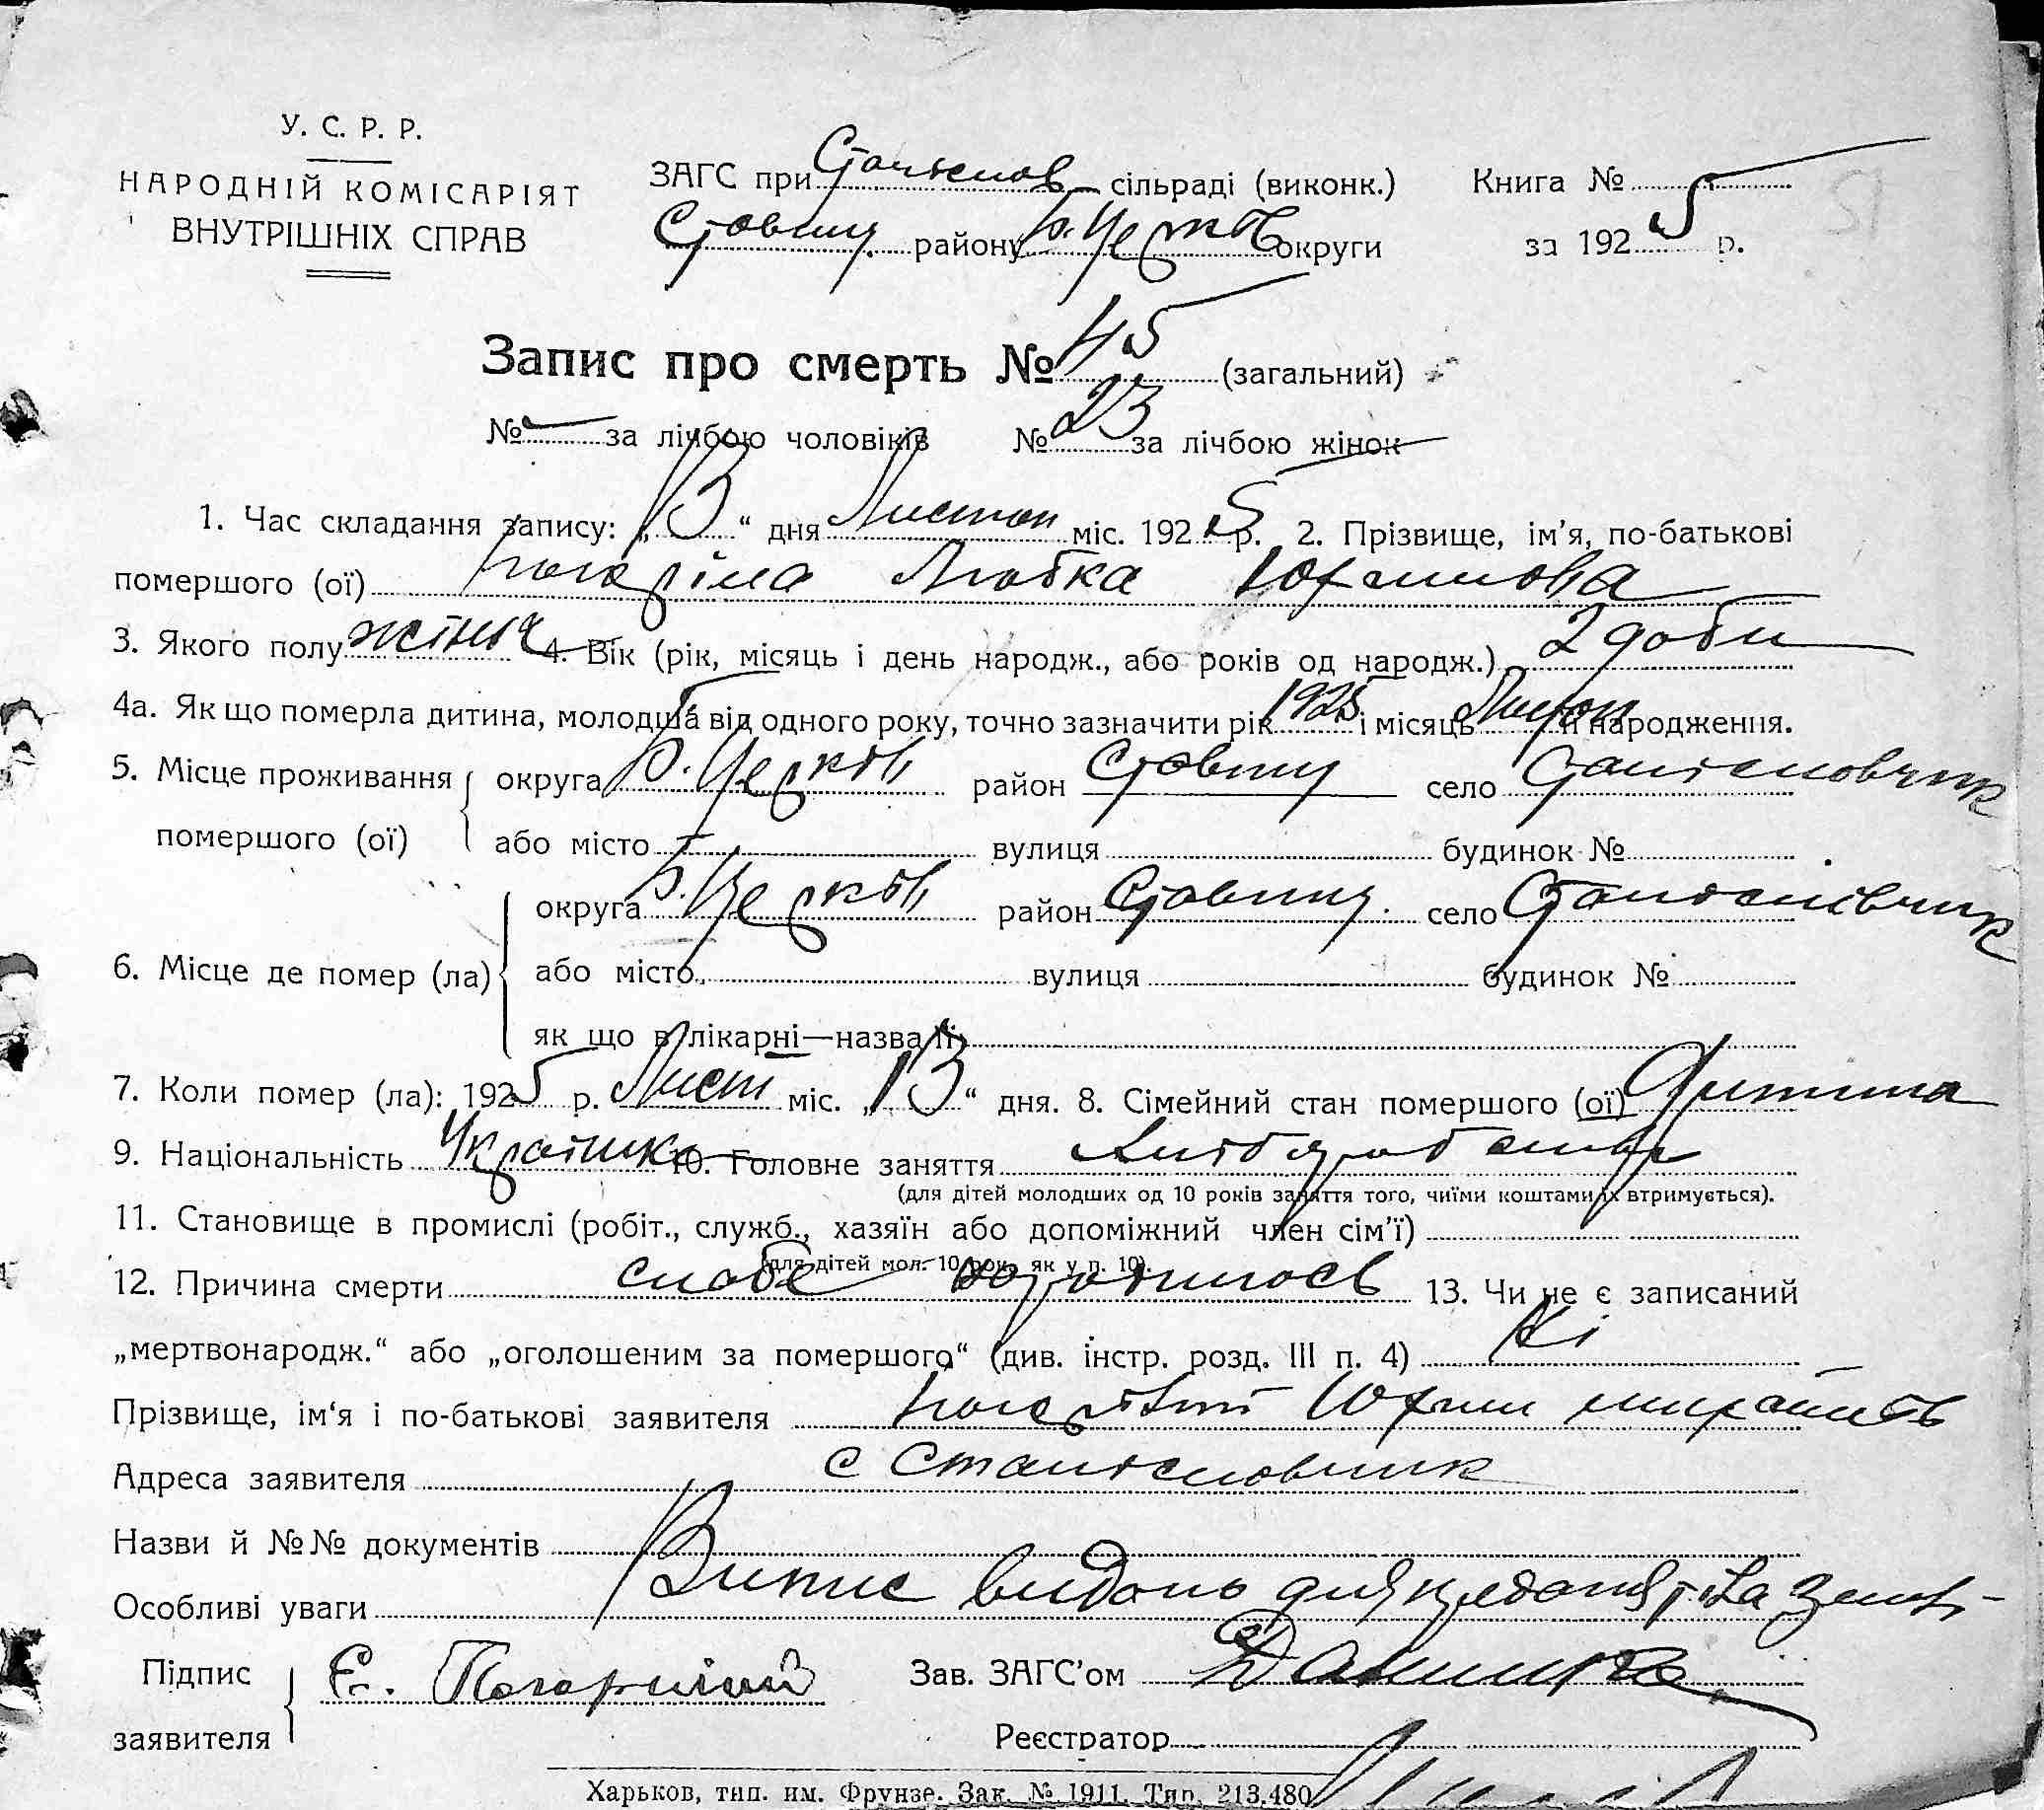 У. С. Р. Р.
НАРОДНІЙ КОМІСАРІЯТ
ВНУТРІШНІХ СПРАВ
ЗАГС при Станіслов сільраді (виконк.)
Ставищ. району Б. Церків округи
Книга №
за 1925 р.
Запис про смерть № 45 (загальний)
№ — за лічбою чоловіків № 23 за лічбою жінок
1. Час складання запису: „13“ дня Листоп міс. 1925 р. 2. Прізвище, ім’я, по-батькові
помершого (ої) Погоріла Любка Юхимова
3. Якого полу жіноч 4. Вік (рік, місяць і день народж., або років од народж.) 2 доби
4а. Як що померла дитина, молодша від одного року, точно зазначити рік 1925 і місяць Листоп її народження.
5. Місце проживання помершого (ої) округа Б. Церків район Ставищ село Станіславчик
або місто вулиця будинок №
6. Місце де помер (ла) округа Б. Церків район Ставищ. село Станіславчик
або місто вулиця будинок №
як що в лікарні—назва її
7. Коли помер (ла): 1925 р. Лист міс. „13“ дня. 8. Сімейний стан помершого (ої) Дитина
9. Національність Українка 10. Головне заняття Хліборобство
(для дітей молодших од 10 років заняття того, чиїми коштами їх втримується).
11. Становище в промислі (робіт., служб., хазяїн або допоміжний член сім’ї)
(для дітей мол. 10 рок. як у п. 10).
12. Причина смерти слабе народилось 13. Чи не є записаний
„мертвонародж.“ або „оголошеним за помершого“ (див. інстр. розд. III п. 4) Ні
Прізвище, ім‘я і по-батькові заявителя Погорілий Юхим
Адреса заявителя с Станіславчик
Назви й №№ документів
Особливі уваги Випис видано для
Підпис заявителя Є. Погорілий Зав. ЗАГС’ом
Реєстратор
Харьков, тип. им. Фрунзе. Зак. № 1911. Тир. 213.480